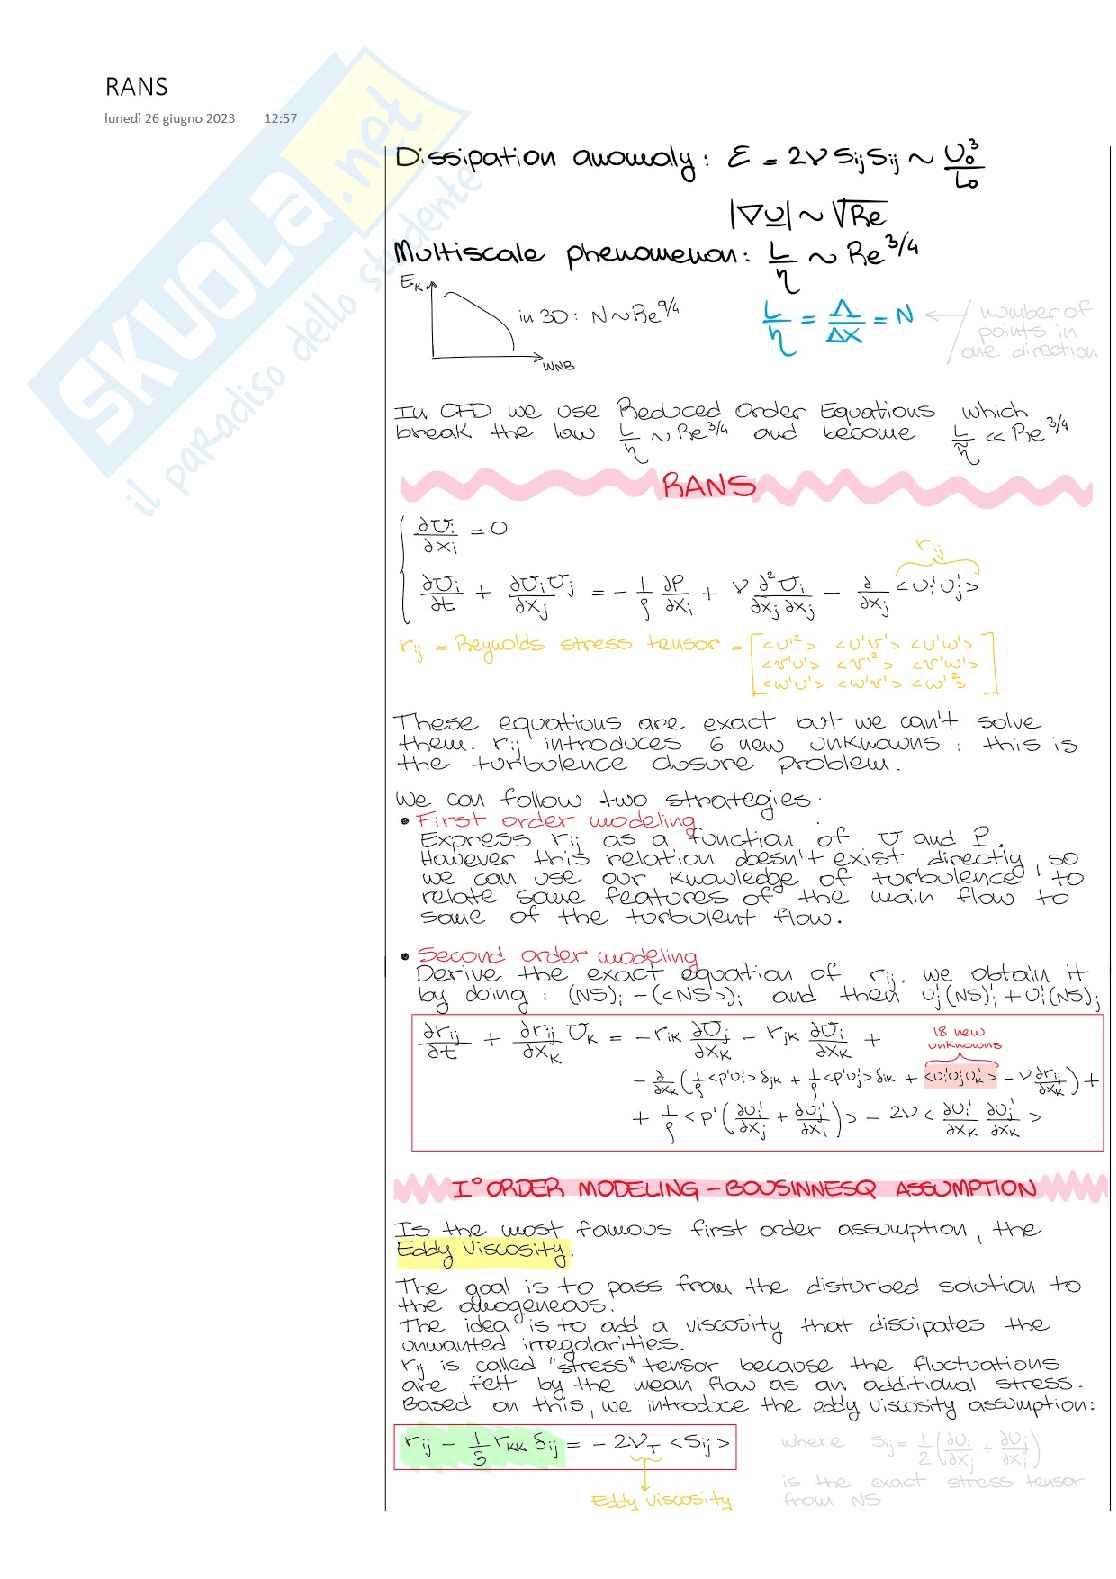 RANS
lunedì 26 giugno 2023 12:57
SKUOLA.net
il paradiso dello studente
Dissipation anomaly: ε = 2ν Sij Sij ~ U₀³/L₀
|∇U| ~ √Re
Multiscale phenomenon: L/η ~ Re^3/4
Eₖ
WNB
in 3D: N~Re^9/4
L/η = Λ/Δx = N
number of
points in
one direction
In CFD we use Reduced Order Equations which
break the law L/η ~ Re^3/4 and become L/η̃ << Re^3/4
RANS
∂Ui/∂xi = 0
rij
∂Ui/∂t + ∂UiUj/∂xj = - 1/ρ ∂P/∂xi + ν ∂²Ui/∂xj∂xj - ∂/∂xj <ui'uj'>
rij = Reynolds stress tensor = [<u'²> <u'v'> <u'w'>
<v'u'> <v'²> <v'w'>
<w'u'> <w'v'> <w'²>]
These equations are exact but we can't solve
them. rij introduces 6 new unknowns: this is
the turbulence closure problem.
We can follow two strategies:
• First order modeling
Express rij as a function of U and P.
However this relation doesn't exist directly, so
we can use our knowledge of turbulence to
relate some features of the main flow to
some of the turbulent flow.
• Second order modeling
Derive the exact equation of rij. we obtain it
by doing: (NS)i - (<NS>)i and then uj'(NS)i' + ui'(NS)j
∂rij/∂t + ∂rij/∂xk Uk = - rik ∂Uj/∂xk - rjk ∂Ui/∂xk +
18 new
unknowns
- ∂/∂xk (1/ρ <p'ui'> δjk + 1/ρ <p'uj'> δik + <ui'uj'uk'> - ν ∂rij/∂xk) +
+ 1/ρ <p' (∂ui'/∂xj + ∂uj'/∂xi)> - 2ν <∂ui'/∂xk ∂uj'/∂xk>
I° ORDER MODELING - BOUSINNESQ ASSUMPTION
Is the most famous first order assumption, the
Eddy Viscosity.
The goal is to pass from the disturbed solution to
the omogeneous.
The idea is to add a viscosity that dissipates the
unwanted irregolarities.
rij is called "stress" tensor because the fluctuations
are felt by the mean flow as an additional stress.
Based on this, we introduce the eddy viscosity assumption:
rij - 1/3 rkk δij = - 2νT <Sij>
Eddy viscosity
where Sij = 1/2 (∂Ui/∂xj + ∂Uj/∂xi)
is the exact stress tensor
from NS